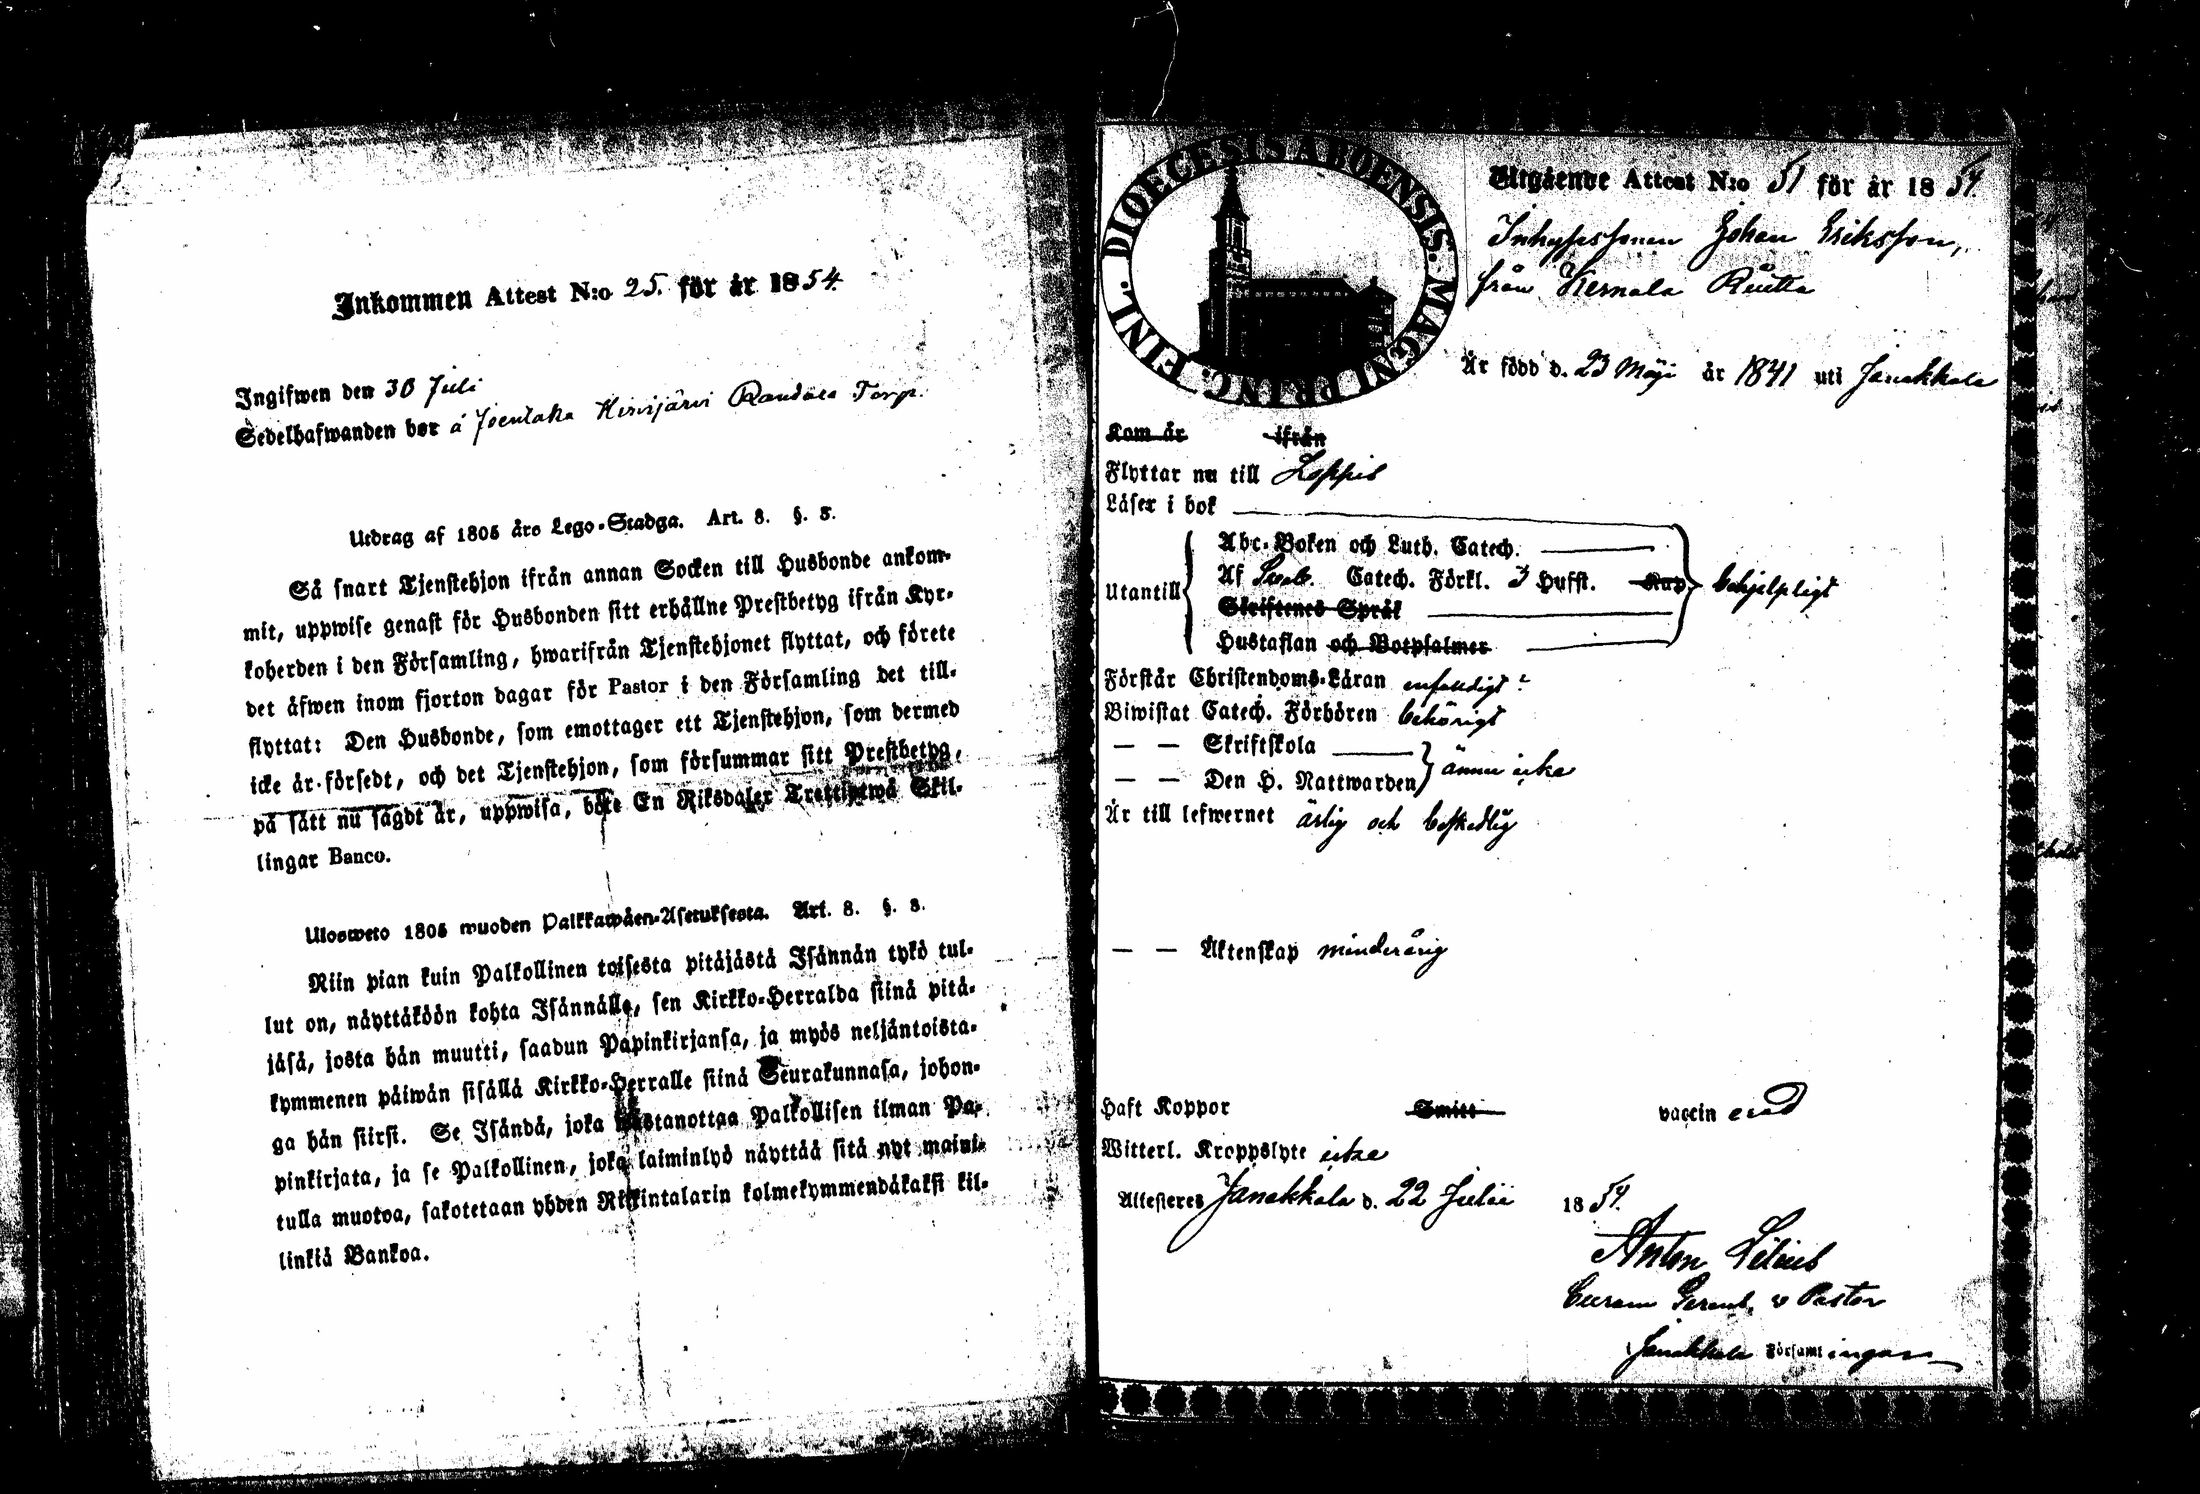 Inkommen Attest N:o 25. för år 1854.
Ingifwen den 30 Juli
Sedelhafwanden bor á Joentaka Hirvijärvi Torp.
Utdrag af 1805 års Lego-Stadga. Art. 8. §. 3.
Så snart Tjenstehjon ifrån annan Socken till Husbonde ankom-
mit, uppwise genast för Husbonden sitt erhållne Prestbetyg ifrån Kyr-
koherden i den Församling, hwarifrån Tjenstehjonet flyttat, och förete
det äfwen inom fjorton dagar för Pastor i den Församling det till-
flyttat: Den Husbonde, som emottager ett Tjenstehjon, som dermed
icke är försedt, och det Tjenstehjon, som försummar sitt Prestbetyg,
på sätt nu sagdt är, uppwisa, böte En Riksdaler Trettiotwå Skil-
lingar Banco.
Uloswetο 1805 wuoden Palkkawäen-Asetuksesta. Art. 8. §. 3.
Niin pian kuin Palkollinen toisesta pitäjästä Isännän tykö tul-
lut on, näyttäköön kohta Isännälle, sen Kirkko-Herralda siinä pitä-
jäsä, josta hän muutti, saadun Papinkirjansa, ja myös neljäntoista-
kymmenen päiwän sisällä Kirkko-Herralle siinä Seurakunnasa, johon-
ga hän siirsi. Se Isändä, joka wastanottaa Palkollisen ilman Pa-
pinkirjata, ja se Palkollinen, joka laiminlyö näyttää sitä nyt maini-
tulla muotoa, sakotetaan yhden Riikintalarin kolmekymmendäkaksi kil-
linkiä Bankoa.
DIOECESIS ABOENSIS. MAGNI PRINC. FINL.
Utgående Attest N:o 51 för år 1854.
Inhysessonen Johan Eriksson,
från Kernala
Är född d. 23 Maji år 1841 uti Janakkala
Kom år ifrån
Flyttar nu till Loppis
Läser i bok
Utantill
Abc-Boken och Luth. Catech.
Af Sveb. Catech. Förkl. 3 Hufst. Kap
behjelpligt
Skriftenes Språk
Hustaflan och Botpsalmer
Förstår Christendoms-Läran enfaldigt
Biwistat Catech. Förhören behörigt
— — Skriftskola
— — Den H. Nattwarden
ännu icke
Är till lefwernet ärlig och beskedlig
— — Äktenskap minderårig
Haft Koppor Smitt vaccin
Witterl. Kroppslyte icke
Attesteres Janakkala d. 22 Julii 1854.
Anton Lilius
Pastor
Janakkala Församlingar